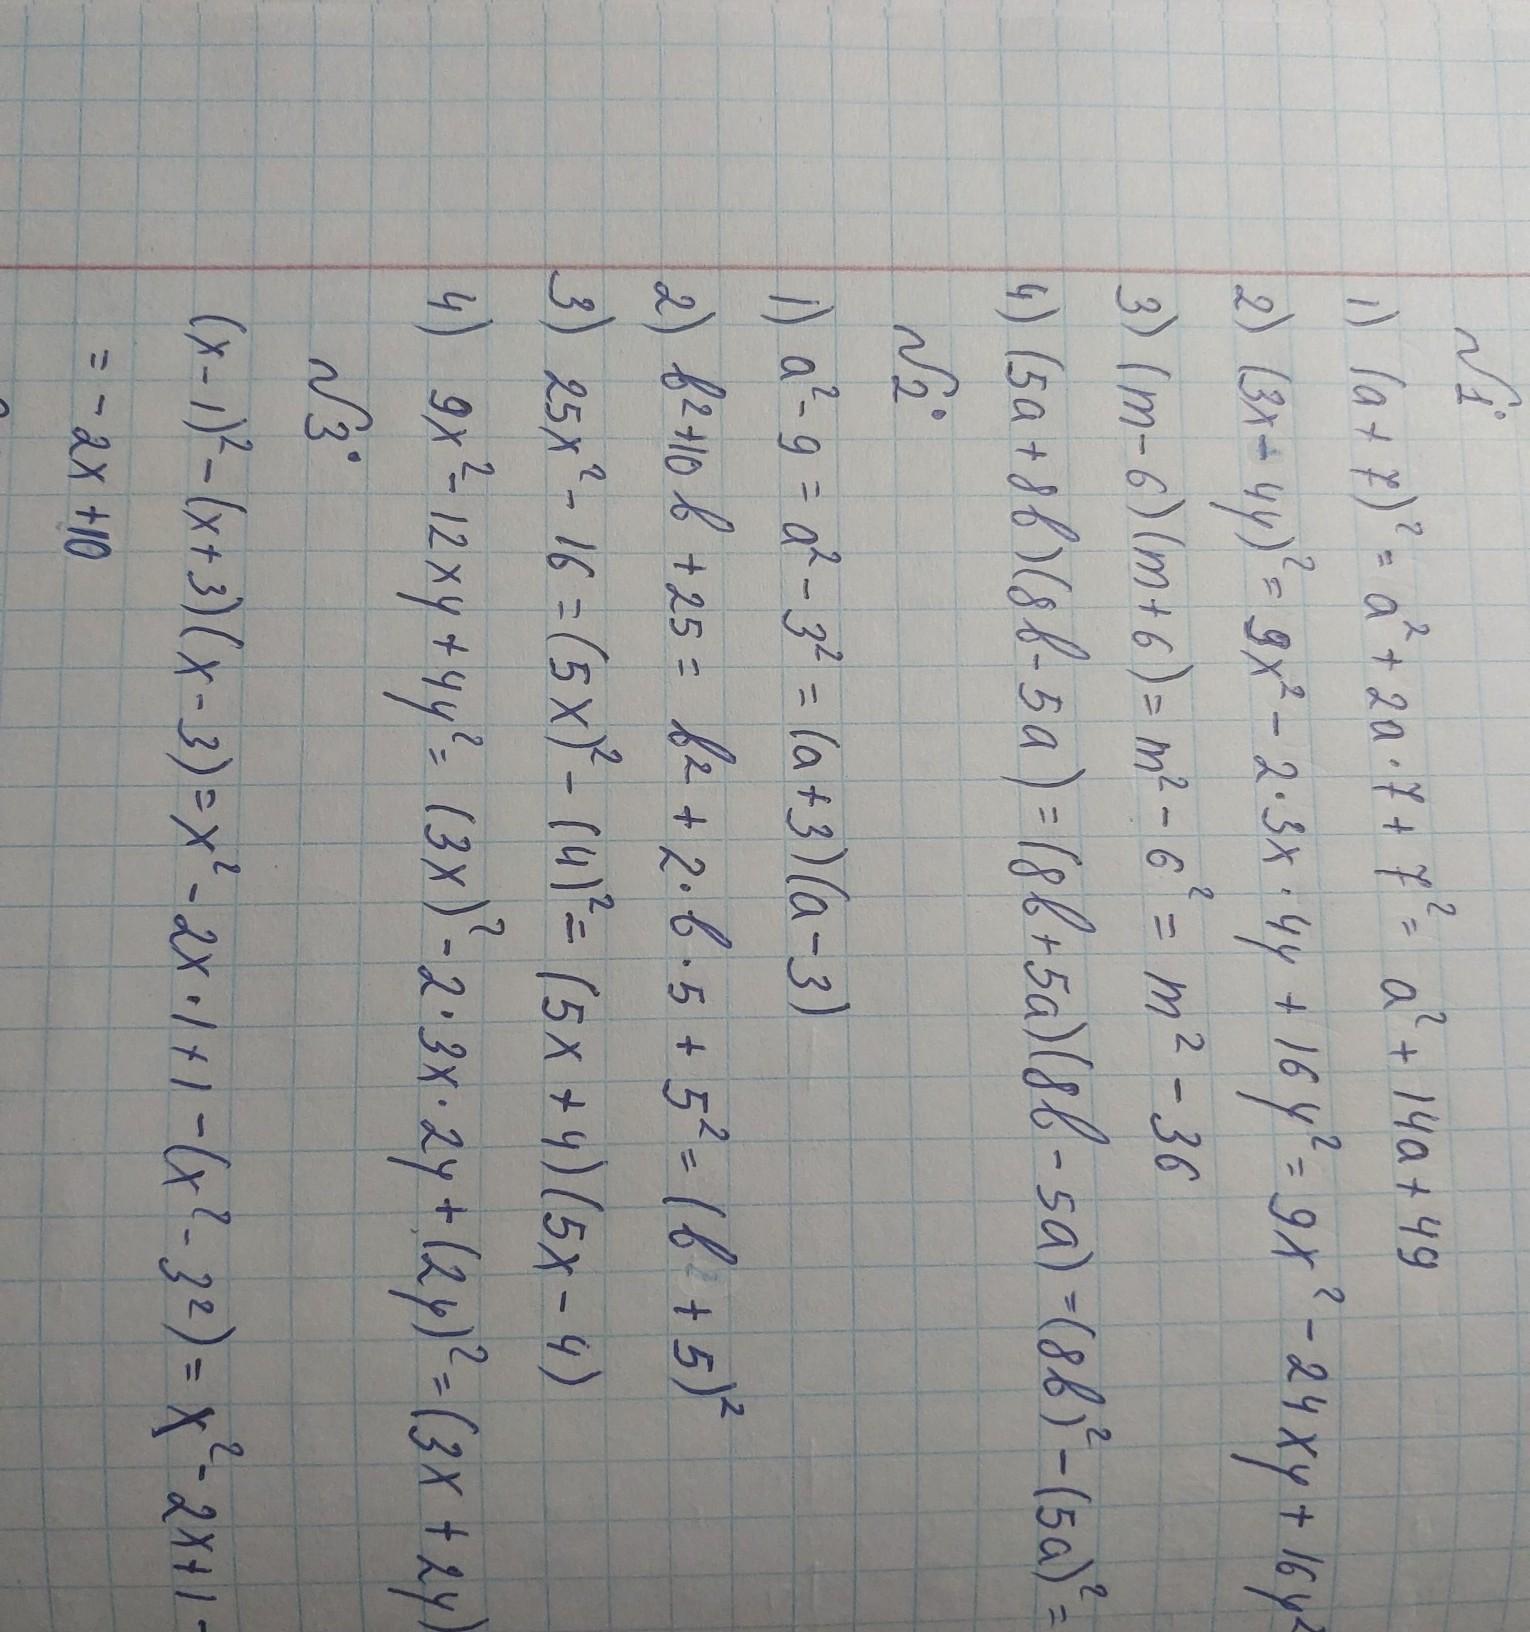 №1.
1) (a + 7)² = a² + 2a · 7 + 7² = a² + 14a + 49
2) (3x - 4y)² = 9x² - 2 · 3x · 4y + 16y² = 9x² - 24xy + 16y²
3) (m - 6)(m + 6) = m² - 6² = m² - 36
4) (5a + 8b)(8b - 5a) = (8b + 5a)(8b - 5a) = (8b)² - (5a)² =
№2.
1) a² - 9 = a² - 3² = (a + 3)(a - 3)
2) b² + 10b + 25 = b² + 2 · b · 5 + 5² = (b + 5)²
3) 25x² - 16 = (5x)² - (4)² = (5x + 4)(5x - 4)
4) 9x² - 12xy + 4y² = (3x)² - 2 · 3x · 2y + (2y)² = (3x + 2y)
№3.
(x - 1)² - (x + 3)(x - 3) = x² - 2x · 1 + 1 - (x² - 3²) = x² - 2x + 1 -
= - 2x + 10